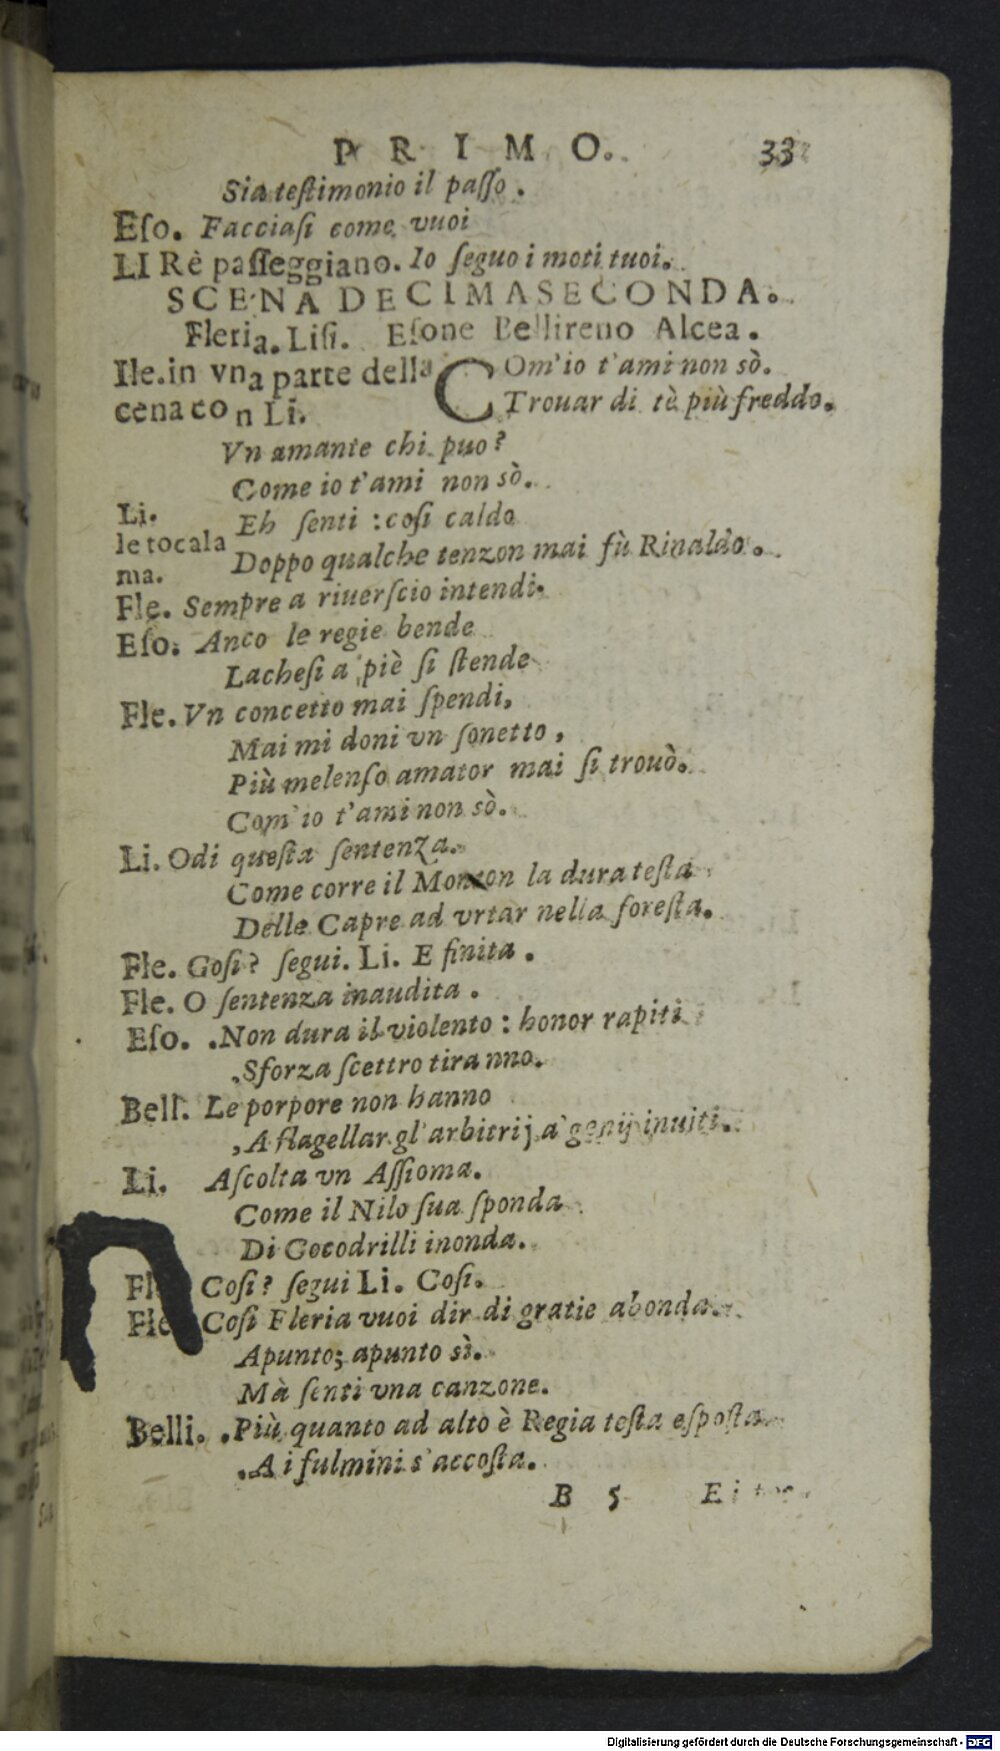 PRIMO. 33
Sia teſtimonio il paſſo.
Eſo. Facciaſi come vuoi
LI Rè paſſeggiano. Io ſeguo i moti tuoi.
SCENA DECIMASECONDA.
Fleria. Liſi. Eſone Bellireno Alcea.
Ile. in vna parte della COm'io t'ami non sò.
cena con Li. Trouar di tè più freddo.
Vn amante chi puo?
Come io t'ami non sò.
Li. Eh ſenti : coſi caldo
le toca la ma. Doppo qualche tenzon mai fù Rinaldo.
Fle. Sempre a riuerſcio intendi.
Eſo. Anco le regie bende
Lacheſi a piè ſi ſtende
Fle. Vn concetto mai ſpendi,
Mai mi doni vn ſonetto,
Più melenſo amator mai ſi trouò.
Com'io t'ami non sò.
Li. Odi queſta ſentenza.
Come corre il Monton la dura teſta
Delle Capre ad vrtar nella foreſta.
Fle. Goſi? ſegui. Li. E finita.
Fle. O ſentenza inaudita.
Eſo. .Non dura il violento : honor rapiti
,Sforza ſcettro tiranno.
Bell. Le porpore non hanno
,A flagellar gl'arbitrij a' genij inuiti.
Li. Aſcolta vn Aſſioma.
Come il Nilo ſua ſponda
Di Cocodrilli inonda.
Fle Coſi? ſegui Li. Coſi.
Fle Coſi Fleria vuoi dir di gratie abonda.
Apunto; apunto sì.
Mà ſenti vna canzone.
Belli. .Più quanto ad alto è Regia teſta eſpoſta
.A i fulmini s'accoſta.
B 5
Digitalisierung gefördert durch die Deutsche Forschungsgemeinschaft - DFG